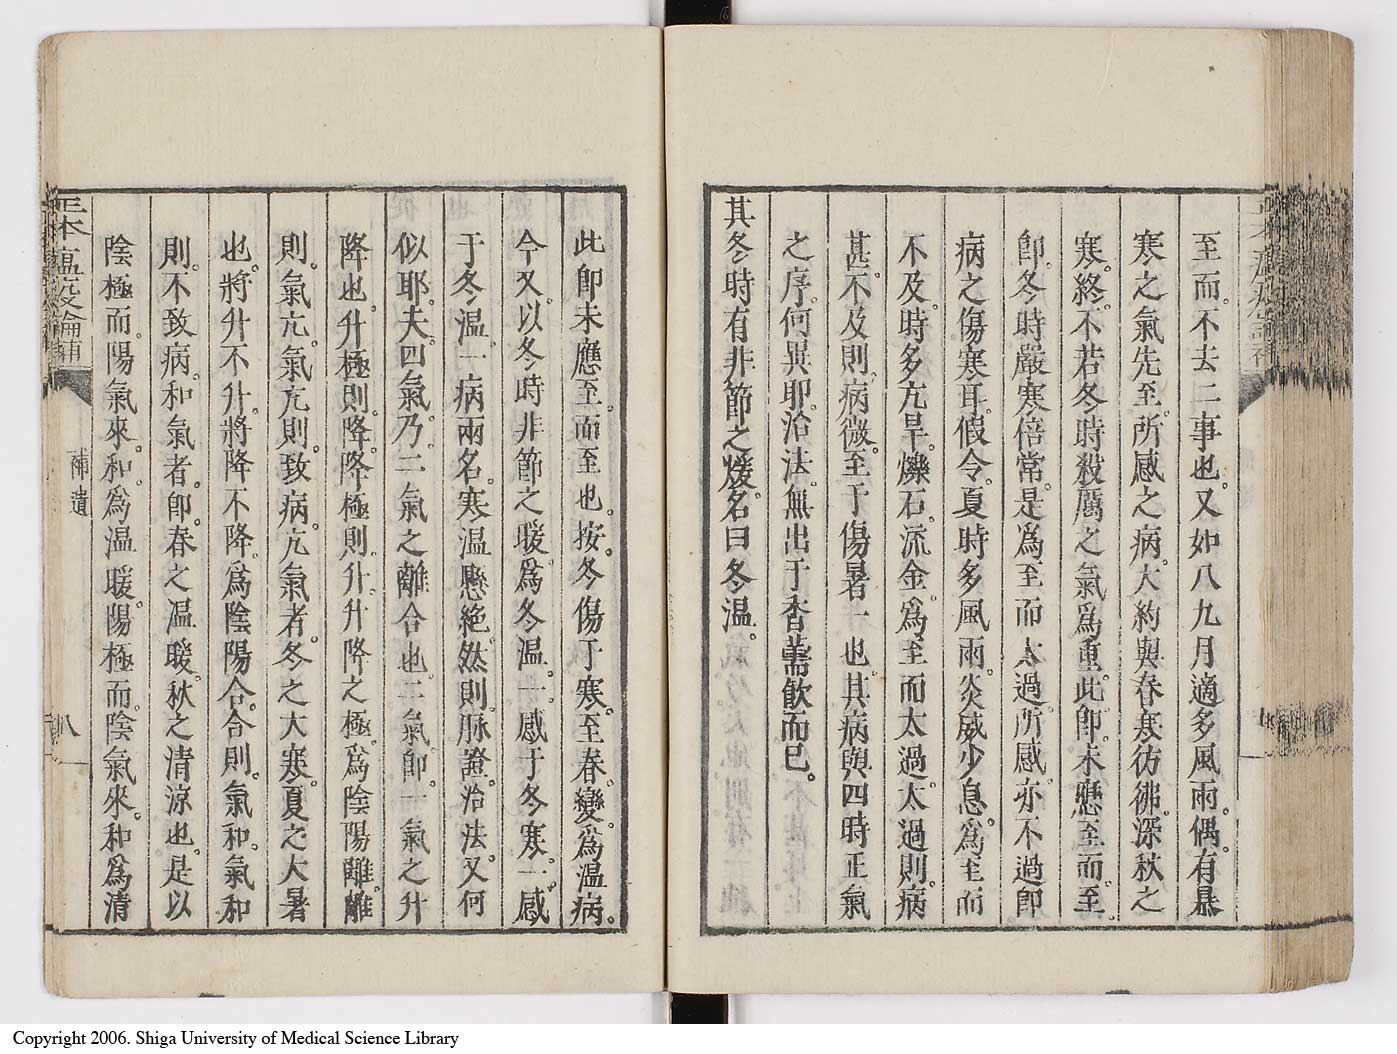 至而。不去二事也。又如八九月適多風雨。偶。有暴
寒之氣先至。所感之病。大約與春寒彷彿。深秋之
寒。終。不若冬時殺厲之氣爲重。此卽。未應至而。至。
卽。冬時嚴寒倍常。是爲至而太過。所感。亦不過卽
病之傷寒耳。假令。夏時多風雨。炎威少息。爲至而
不及。時多亢旱。爍石流金。爲至而太過。太過則。病
甚。不及則。病微。至于傷暑一也。其病與四時正氣
之序。何異耶。治法。無出于香薷飲而已。
其冬時有非節之煖。名曰冬温。
此卽未應至。而至也。按。冬傷于寒。至春。變。爲温病。
今又。以冬時非節之暖。爲冬温。一。感于冬寒。一。感
于冬温。一病兩名。寒温懸絶。然則。脉證。治法。又何
似耶。夫。四氣乃。二氣之離合也。二氣卽。一氣之升
降也。升極則。降。降極則。升。升降之極。爲陰陽離。離
則。氣亢。氣亢則。致病。亢氣者。冬之大寒。夏之大暑
也。將升不升。將降不降。爲陰陽合。合則。氣和。氣和
則。不致病。和氣者。卽春之温暖。秋之清涼也。是以
陰極而。陽氣來。和。爲温暖。陽極而。陰氣來。和爲清
温疫論補
補遺
八
Copyright 2006. Shiga University of Medical Science Library